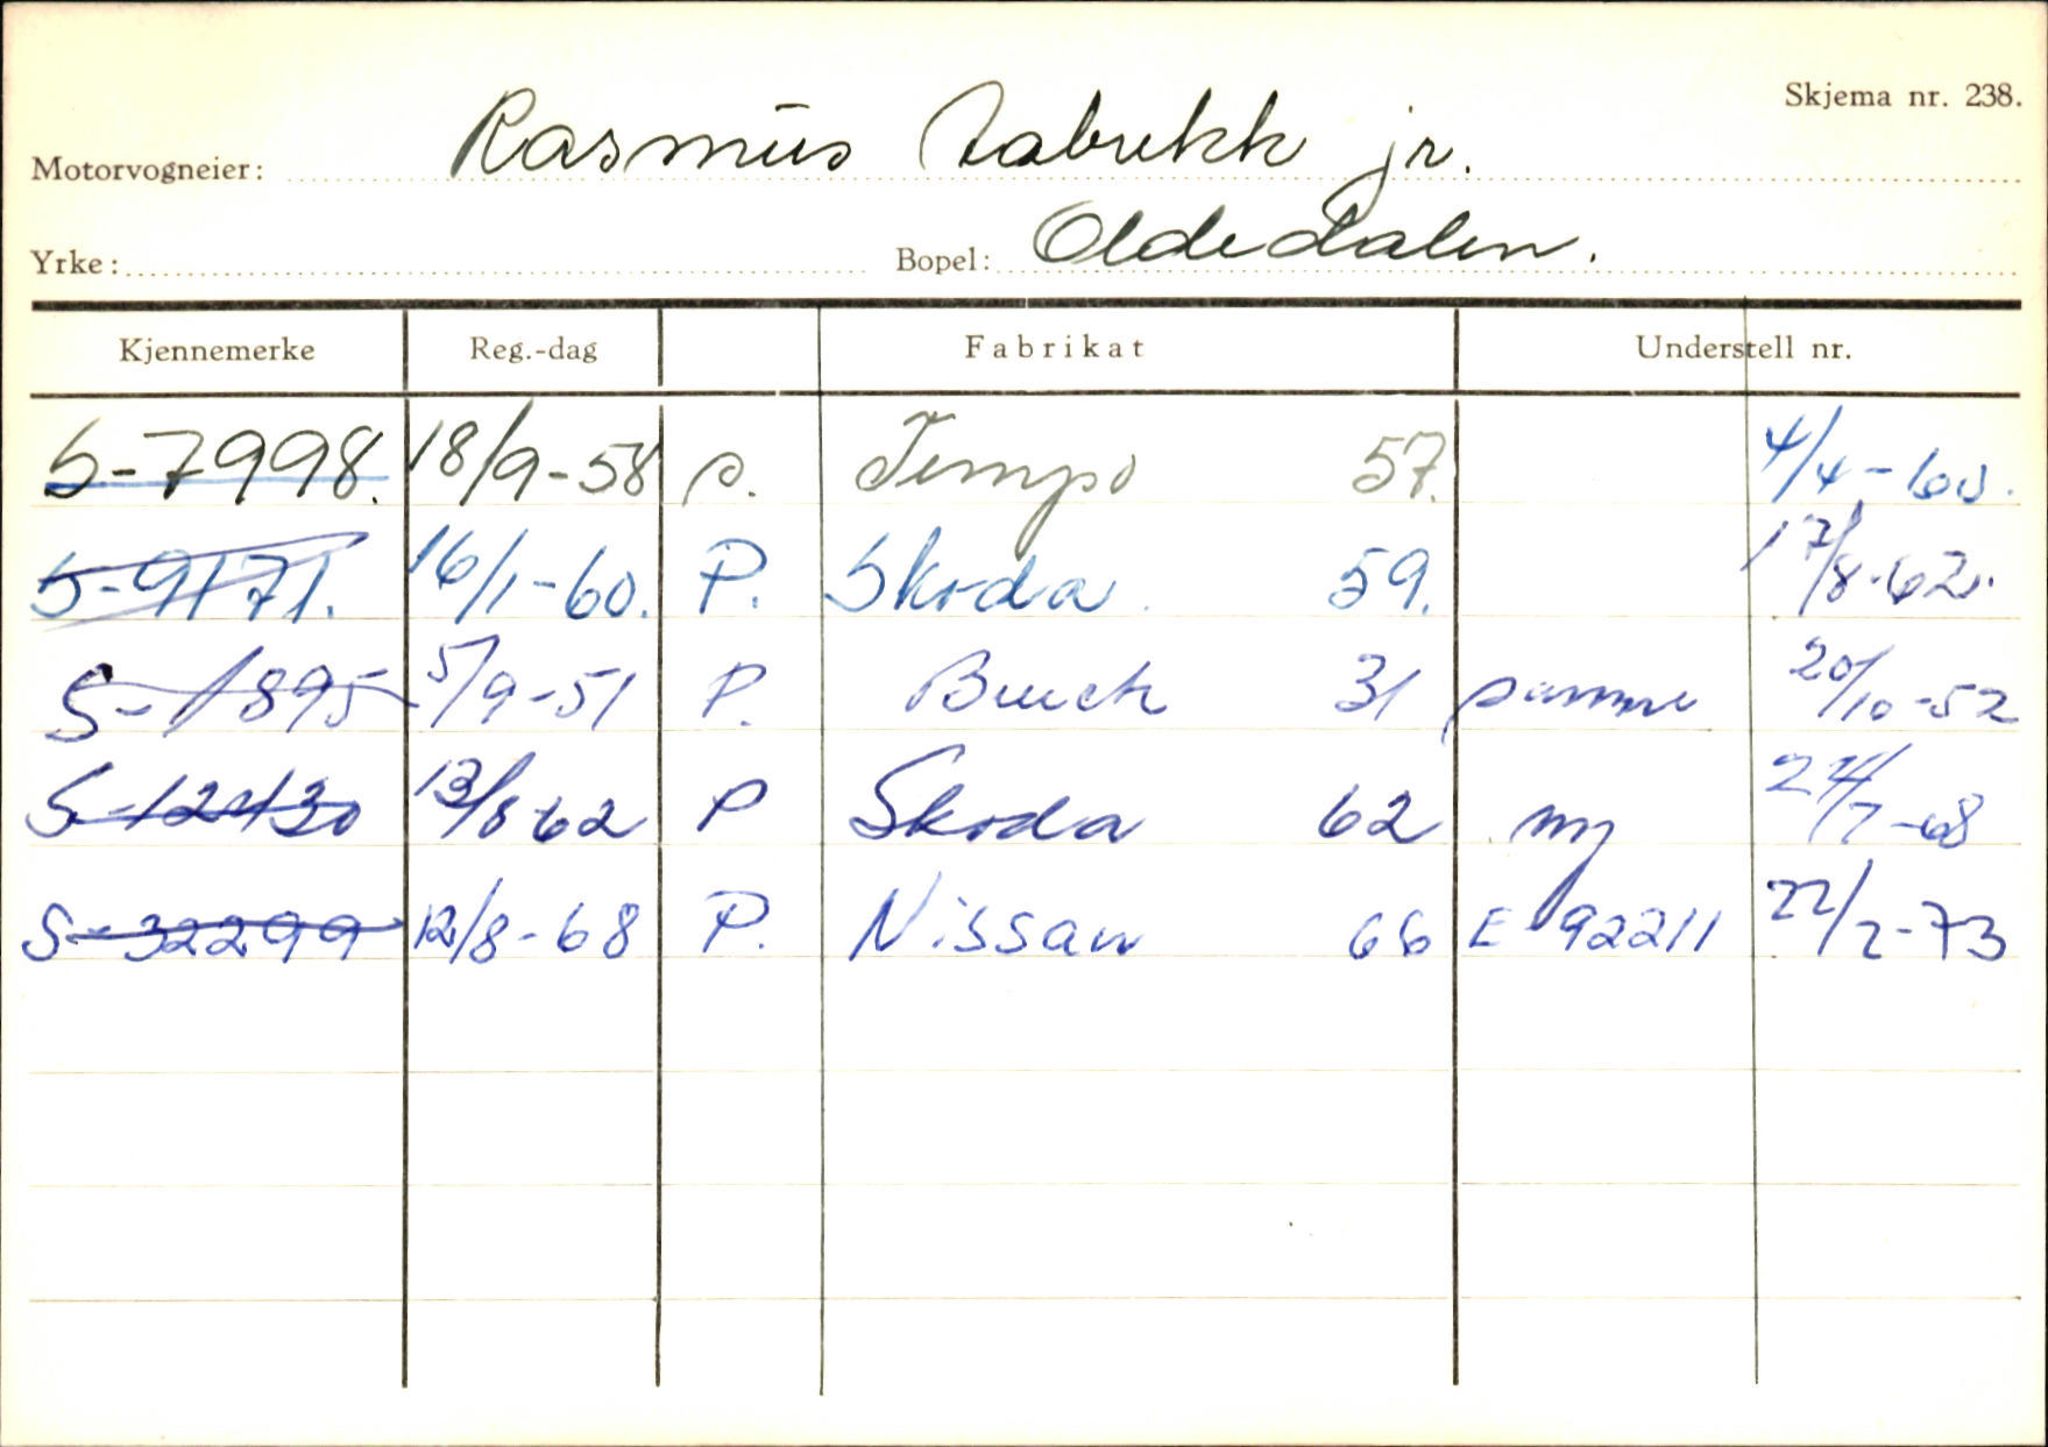 Skjema nr. 238.
Motorvogneier: Rasmus Aabrekk jr.
Yrke: Bopel: Oldedalen.
Kjennemerke Reg.-dag Fabrikat Understell nr.
S-7998. 18/9-58 s. Tempo 57. 4/4-60.
S-9171. 16/1-60. P. Skoda. 59. 17/8-62.
S-1895 5/9-51 P. Buick 31 samme 20/10-52
S-12430 13/8 62 P Skoda 62 ny 24/7-68
S-32299 12/8-68 P. Nissan 66 E 92211 22/2-73